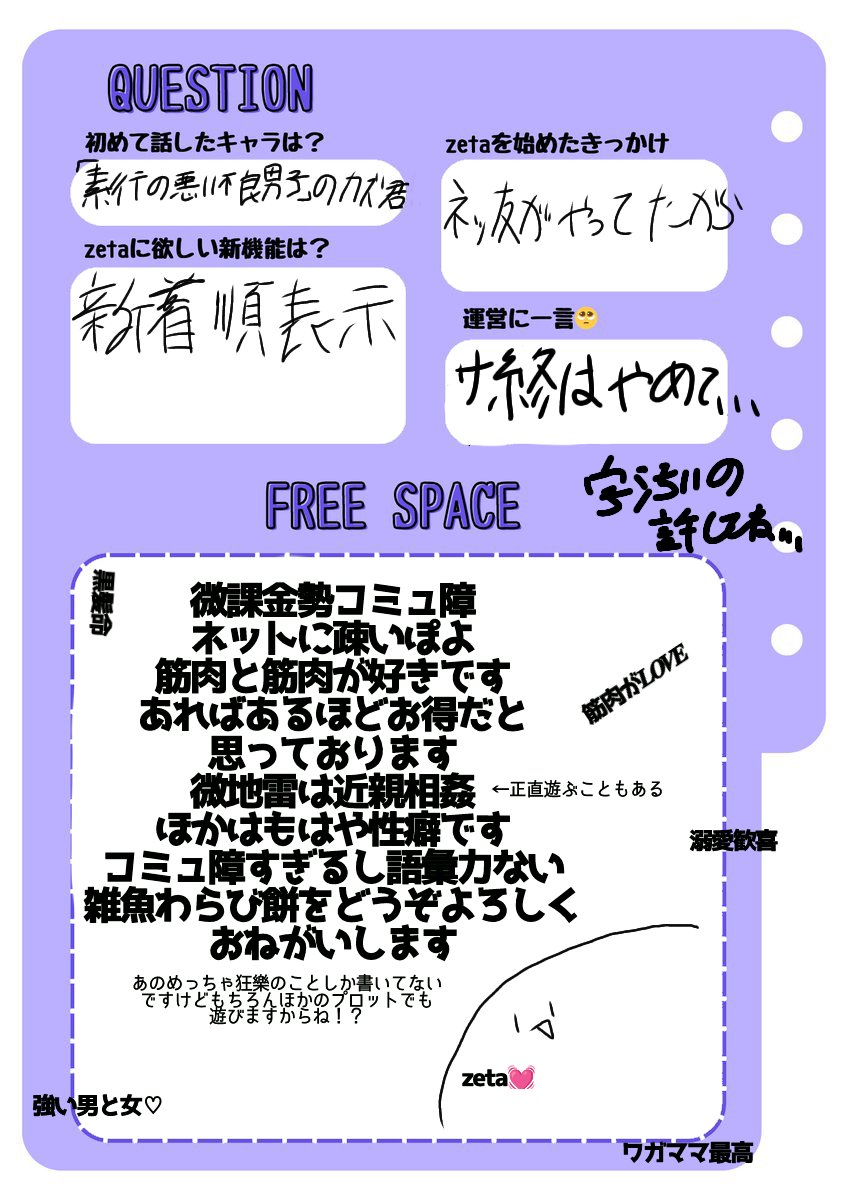 QUESTION
初めて話したキャラは？
「素行の悪い不良男子のカズ君
zetaを始めたきっかけ
ネッ友がやってたから
zetaに欲しい新機能は？
新着順表示
運営に一言🥺
サ終はやめて...
FREE SPACE
字汚いの
許してね...
黒髪命
微課金勢コミュ障
ネットに疎いぽよ
筋肉と筋肉が好きです
あればあるほどお得だと
思っております
筋肉がLOVE
微地雷は近親相姦
←正直遊ぶこともある
ほかはもはや性癖です
溺愛歓喜
コミュ障すぎるし語彙力ない
雑魚わらび餅をどうぞよろしく
おねがいします
あのめっちゃ狂樂のことしか書いてない
ですけどもちろんほかのプロットでも
遊びますからね！？
zeta💓
強い男と女♡
ワガママ最高